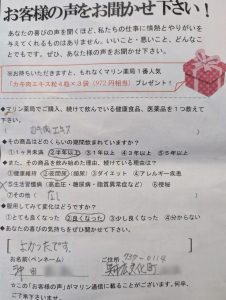 お客様の声をお聞かせ下さい！
あなたの喜びの声を聞くほど、私たちの仕事に情熱とやりがいを
与えてくれるものはありません。いいこと・悪いこと、どんなこ
とでもです。ぜひ、あなた様の声をお聞かせ下さい。
※お持ちいただきますと、もれなくマリン薬局１番人気
「カキ肉エキス粒４粒×３袋（972円相当）プレゼント！
◆マリン薬局でご購入、続けて飲んでいる健康食品、医薬品を１つ教えて
下さい。
カキ肉エキス
◆その商品はどのくらいの期間飲まれていますか？
①１ヶ月未満 ②半年以上 ③１年以上 ④３年以上 ⑤５年以上
◆また、その商品を飲み始めた理由、続けている理由は？
①健康維持 ②夜間尿 ③ダイエット ④アレルギー疾患
⑤生活習慣病（高血圧・糖尿病・脂質異常症など） ⑥便秘
⑦その他（なし）
◆服用してみて変化はどうですか？
①とても良くなった ②良くなった ③少し良くなった ④分からない
◆あなたの喜びの気持ちをぜひお聞かせ下さい
よかったです。
お名前（ペンネーム） ご住所 〒
☆この「お客様の声」がマリン通信に載ることがございます。何卒、
ご了承下さいませ。